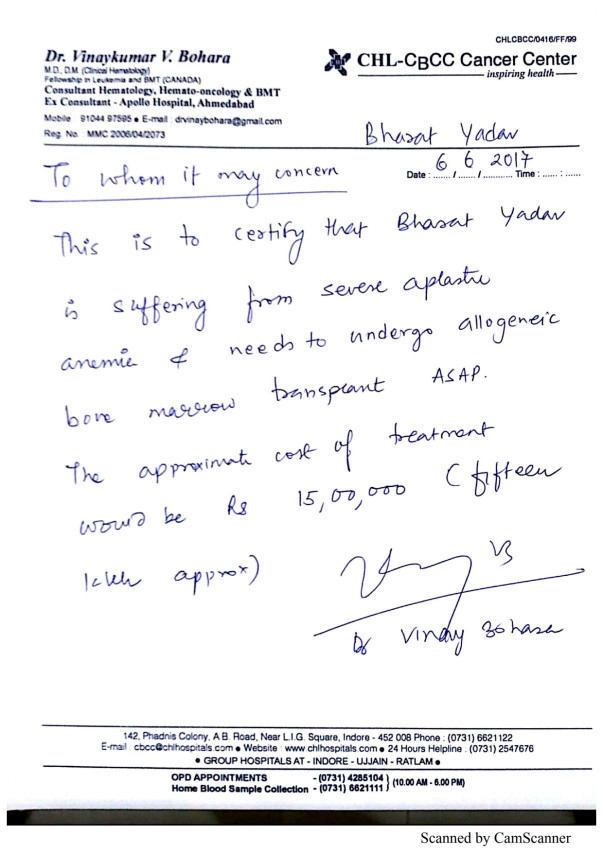 CHLCBCC/0416/FF/99
Dr. Vinaykumar V. Bohara
M.D., D.M. (Clinical Hematology)
Fellowship in Leukemia and BMT (CANADA)
Consultant Hematology, Hemato-oncology & BMT
Ex Consultant - Apollo Hospital, Ahmedabad
Mobile 91044 97595 ● E-mail : drvinaybohara@gmail.com
Reg. No. MMC 2006/04/2073
CHL-CBCC Cancer Center
inspiring health
Bharat Yadav
Date : 6 / 6 / 2017 Time : ...... : ......
To whom it may concern
This is to certify that Bharat Yadav
is suffering from severe aplastic
anemia & needs to undergo allogeneic
bone marrow transplant ASAP.
The approximate cost of treatment
would be Rs 15,00,000 (fifteen
lakh approx)
VB
Dr Vinay Bohara
142, Phadnis Colony, A.B. Road, Near L.I.G. Square, Indore - 452 008 Phone : (0731) 6621122
E-mail : cbcc@chlhospitals.com ● Website : www.chlhospitals.com ● 24 Hours Helpline : (0731) 2547676
● GROUP HOSPITALS AT - INDORE - UJJAIN - RATLAM ●
OPD APPOINTMENTS - (0731) 4285104 } (10.00 AM - 6.00 PM)
Home Blood Sample Collection - (0731) 6621111 }
Scanned by CamScanner